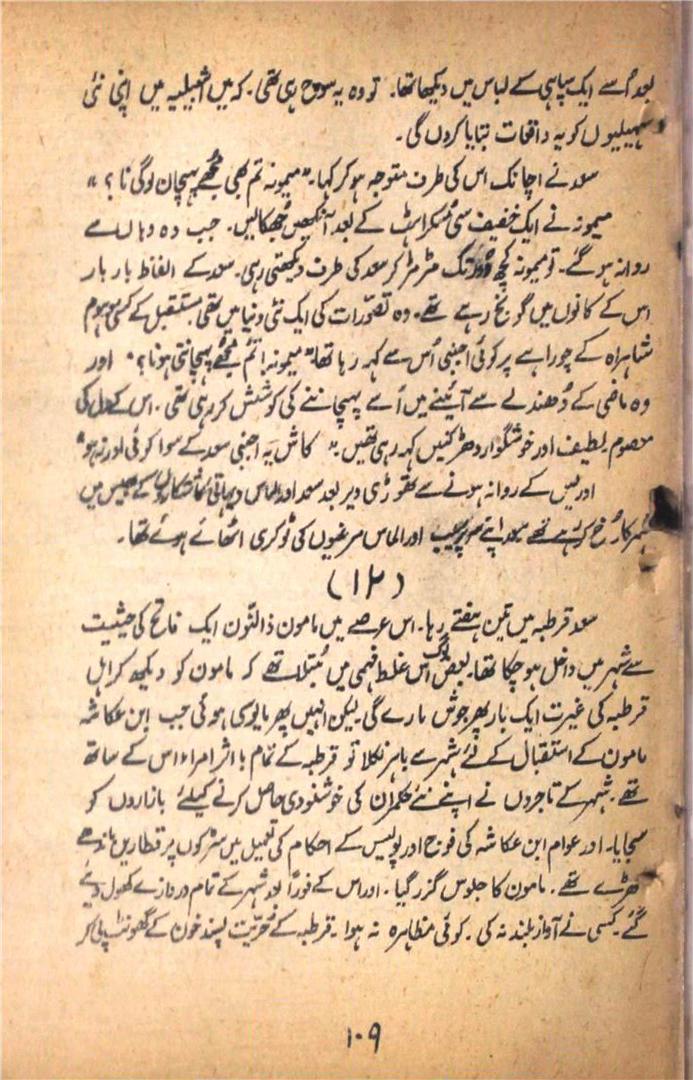 بعد اُسے ایک سپاہی کے لباس میں دیکھا تھا۔ تو وہ یہ سوچ رہی تھی۔ کہ میں اشبیلیہ میں اپنی نئی
سہیلیوں کو یہ واقعات بتایا کروں گی۔
سعد نے اچانک اس کی طرف متوجہ ہو کر کہا۔ "میمونہ تم بھی مجھے پہچان لوگی نا؟"
میمونہ نے ایک خفیف سی مسکراہٹ کے بعد آنکھیں جُھکا لیں۔ جب وہ وہاں سے
روانہ ہو گئے۔ تو میمونہ کچھ دور تک مڑ مڑ کر سعد کی طرف دیکھتی رہی۔ سعد کے الفاظ بار بار
اس کے کانوں میں گونج رہے تھے۔ وہ تصوّرات کی ایک نئی دنیا میں تھی۔ مستقبل کے کسی موہوم
شاہراہ کے چوراہے پر کوئی اجنبی اُس سے کہہ رہا تھا۔ "میمونہ! تم مجھے پہچانتی ہو نا؟" اور
وہ ماضی کے دُھندلے سے آئینے میں اُسے پہچاننے کی کوشش کر رہی تھی۔ اس کے دل کی
معصوم۔ لطیف اور خوشگوار دھڑکنیں کہہ رہی تھیں۔ "کاش یہ اجنبی سعد کے سوا کوئی اور نہ ہو"
ادریس کے روانہ ہونے سے تھوڑی دیر بعد سعد اور الماس دیہاتی کاشتکاروں کے بھیس میں
شہر کا رُخ کر رہے تھے سعد اپنے سر پر سیب اور الماس مرغیوں کی ٹوکری اٹھائے ہوئے تھا۔
(۱۲)
سعد قرطبہ میں تین ہفتے رہا۔ اس عرصے میں مامون ذالنّون ایک فاتح کی حیثیت
سے شہر میں داخل ہو چکا تھا۔ بعض لوگ اس غلط فہمی میں مُبتلا تھے کہ مامون کو دیکھ کر اہلِ
قرطبہ کی غیرت ایک بار پھر جوش مارے گی۔ لیکن انہیں پھر مایوسی ہوئی جب ابن عکاشہ
مامون کے استقبال کے لئے شہر سے باہر نکلا تو قرطبہ کے تمام با اثر امراء اس کے ساتھ
تھے۔ شہر کے تاجروں نے اپنے نئے حکمران کی خوشنودی حاصل کرنے کیلئے بازاروں کو
سجایا۔ اور عوام ابن عکاشہ کی فوج اور پولیس کے احکام کی تعمیل میں سڑکوں پر قطاریں باندھے
کھڑے تھے۔ مامون کا جلوس گزر گیا۔ اور اس کے فوراً بعد شہر کے تمام دروازے کھول دیئے
گئے۔ کسی نے آواز بلند نہ کی۔ کوئی مظاہرہ نہ ہوا۔ قرطبہ کے حُرّیت پسند خون کے گھونٹ پی کر
۱۰۹